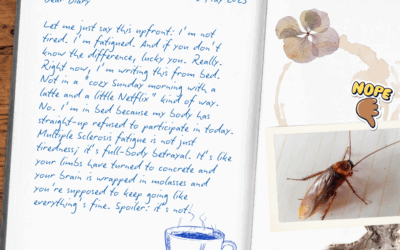 Dear Diary
May 2025
Let me just say this upfront: I'm not
tired. I'm fatigued. And if you don't
know the difference, lucky you. Really.
Right now, I'm writing this from bed.
Not in a "cozy Sunday morning with a
latte and a little Netflix" kind of way.
No. I'm in bed because my body has
straight-up refused to participate in today.
Multiple Sclerosis fatigue is not just
tiredness; it's full-body betrayal. It's like
your limbs have turned to concrete and
your brain is wrapped in molasses and
you're supposed to keep going like
everything's fine. Spoiler: it's not.
NOPE